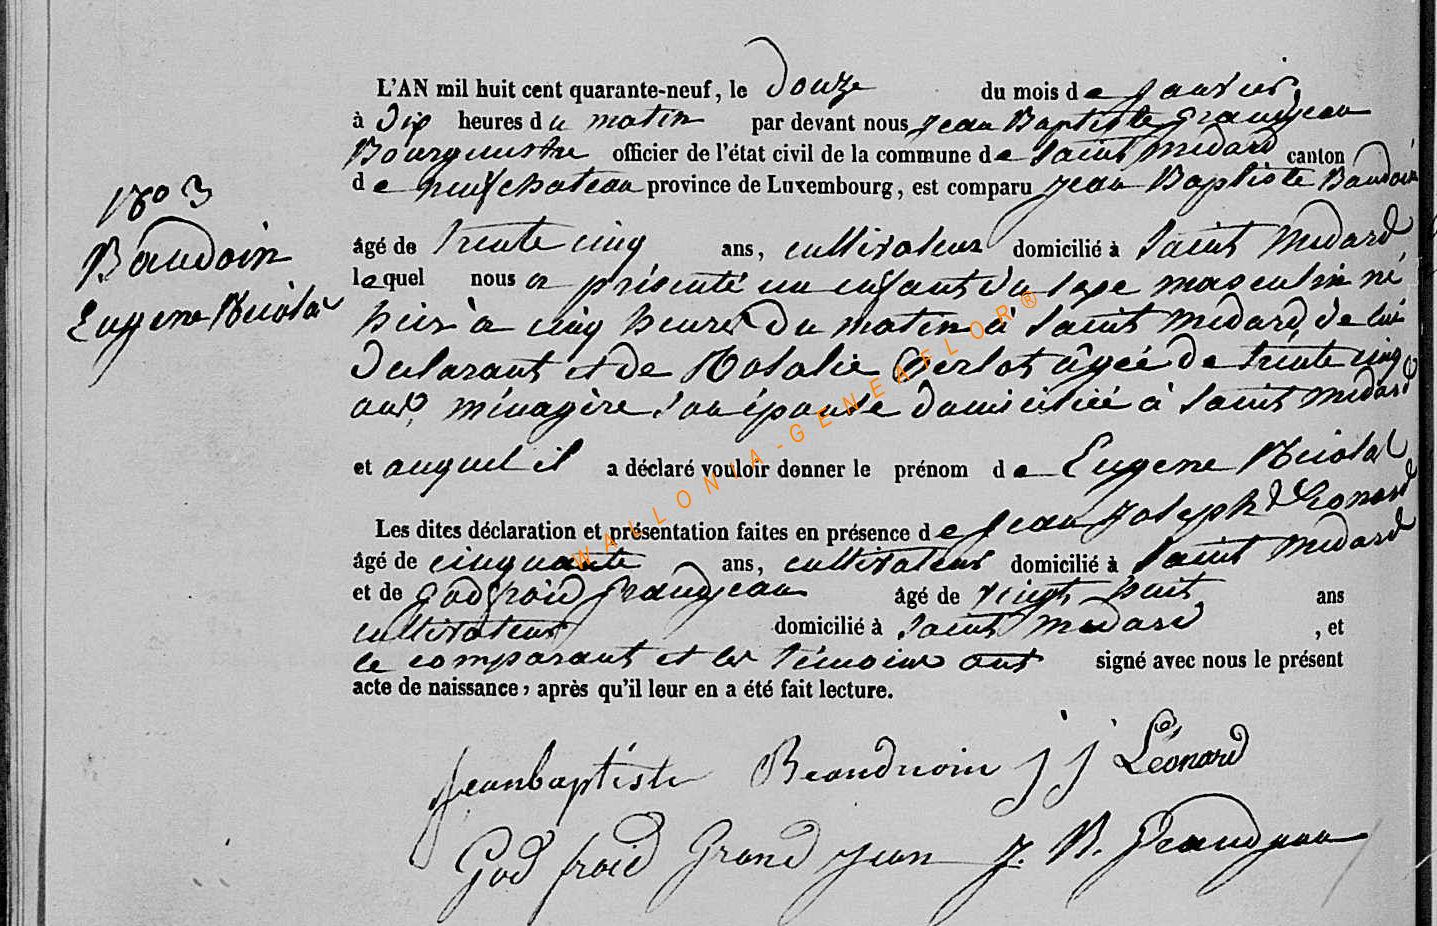 L'AN mil huit cent quarante-neuf, le Douze du mois de janvier
à Dix heures du matin par devant nous jean Baptiste Grandjean
Bourguestre officier de l'état civil de la commune de Saint Medard canton
de neufchateau province de Luxembourg, est comparu jean Baptiste Baudoin
N° 3
Baudoin
Eugene Nicolas
âgé de trente cinq ans, cultivateur domicilié à Saint Medard
lequel nous a présenté un enfant du sexe masculin né
hier à cinq heures du matin à Saint Medard, de lui
Declarant et de Rosalie Perlot âgée de trente cinq
ans, ménagère son épouse domiciliée à Saint Medard
et auquel il a déclaré vouloir donner le prénom de Eugene Nicolas
Les dites déclaration et présentation faites en présence de jean joseph Léonard
âgé de cinquante ans, cultivateur domicilié à Saint Medard
et de Godfroid Grandjean âgé de vingt huit ans
cultivateur domicilié à Saint Medard , et
le comparant et les témoins ont signé avec nous le présent
acte de naissance, après qu'il leur en a été fait lecture.
jeanbaptiste Beauduoin j j Léonard
Godfroid Grandjean J. B. Grandjean
WALLONIA-GENEAFLOR®